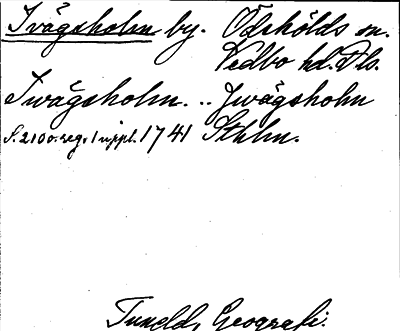 Ivägsholm by. Ödskölds sn.
Vedbo hd. Dls.
Iwägsholm. .. Jwägsholm
S. 210 o. reg. 1 uppl. 1741 Sthlm.
Tunelds Geografi.